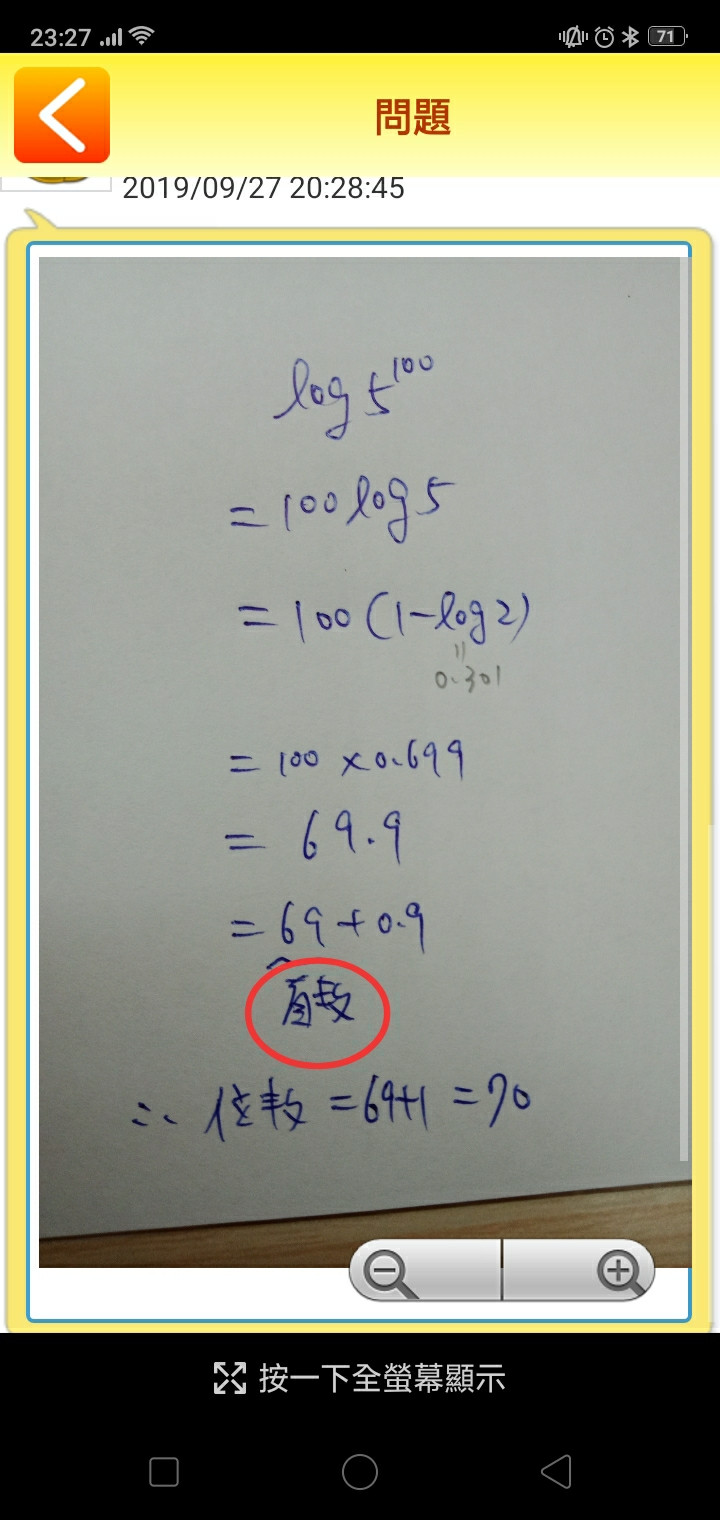 23:27
71
問題
2019/09/27 20:28:45
log 5¹⁰⁰
= 100 log 5
= 100 (1-log 2)
=
0.301
= 100 × 0.699
= 69.9
= 69 + 0.9
首數
∴ 位數 = 69+1 = 70
按一下全螢幕顯示